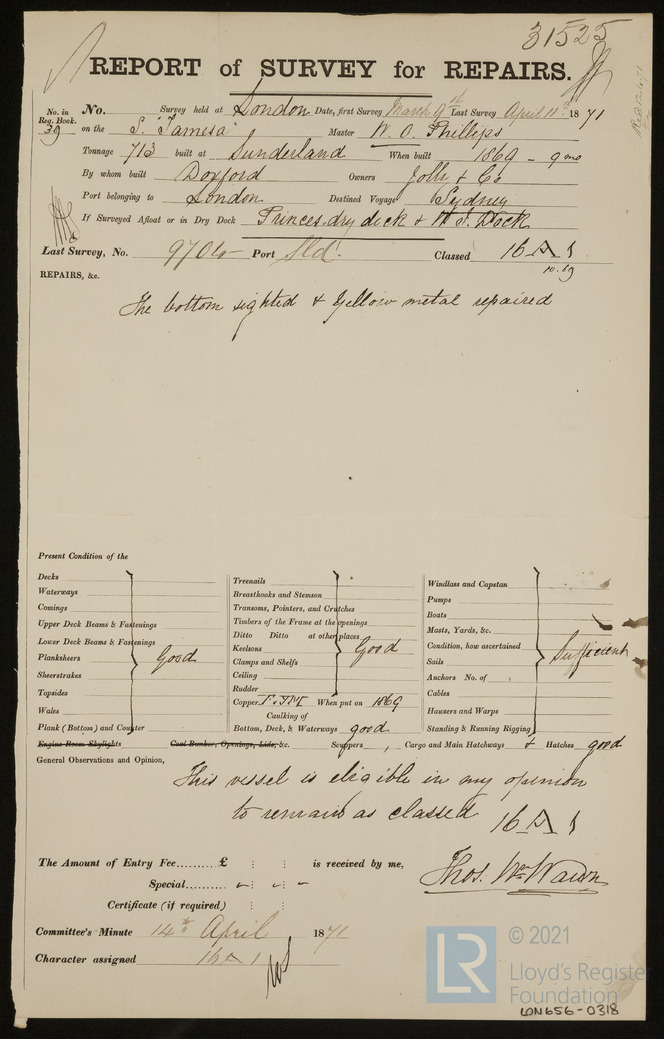 31525
REPORT of SURVEY for REPAIRS.
No. in Reg. Book. No. Survey held at London Date, first Survey March 9th Last Survey April 11th 1871
39 on the S. "Tamesa" Master W. O. Phillips
Tonnage 713 built at Sunderland When built 1869 - 9 mo
By whom built Doxford Owners Jolly & Co
Port belonging to London Destined Voyage Sydney
If Surveyed Afloat or in Dry Dock Princes dry dock & W. I. Dock
Last Survey, No. 9706 Port Sld. Classed 16 A 1
10.69
REPAIRS, &c.
The bottom sighted & Yellow metal repaired
Present Condition of the
Decks
Waterways
Comings
Upper Deck Beams & Fastenings
Lower Deck Beams & Fastenings
Planksheers Good
Sheerstrakes
Topsides
Wales
Plank (Bottom) and Counter
Treenails
Breasthooks and Stemson
Transoms, Pointers, and Crutches
Timbers of the Frame at the openings
Ditto Ditto at other places
Keelsons Good
Clamps and Shelfs
Ceiling
Rudder
Copper F. & YM When put on 1869
Caulking of
Bottom, Deck, & Waterways good
Windlass and Capstan
Pumps
Boats
Masts, Yards, &c.
Condition, how ascertained Sufficient
Sails
Anchors No. of
Cables
Hausers and Warps
Standing & Running Rigging
Engine Room Skylights Coal Bunker, Openings, Lids, &c. Scuppers, Cargo and Main Hatchways & Hatches good
General Observations and Opinion,
This vessel is eligible in my opinion
to remain as classed 16 A 1
The Amount of Entry Fee.......... £ : : is received by me,
Special.......... - : - : -
Certificate (if required) : :
Thos. Wm Wawn
Committee's Minute 14th April 1871
Character assigned 16 A 1
LR © 2021
Lloyd's Register
Foundation
LON656-0318